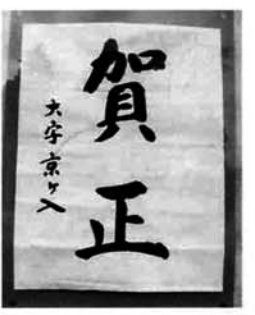 賀正
大字京ヶ入